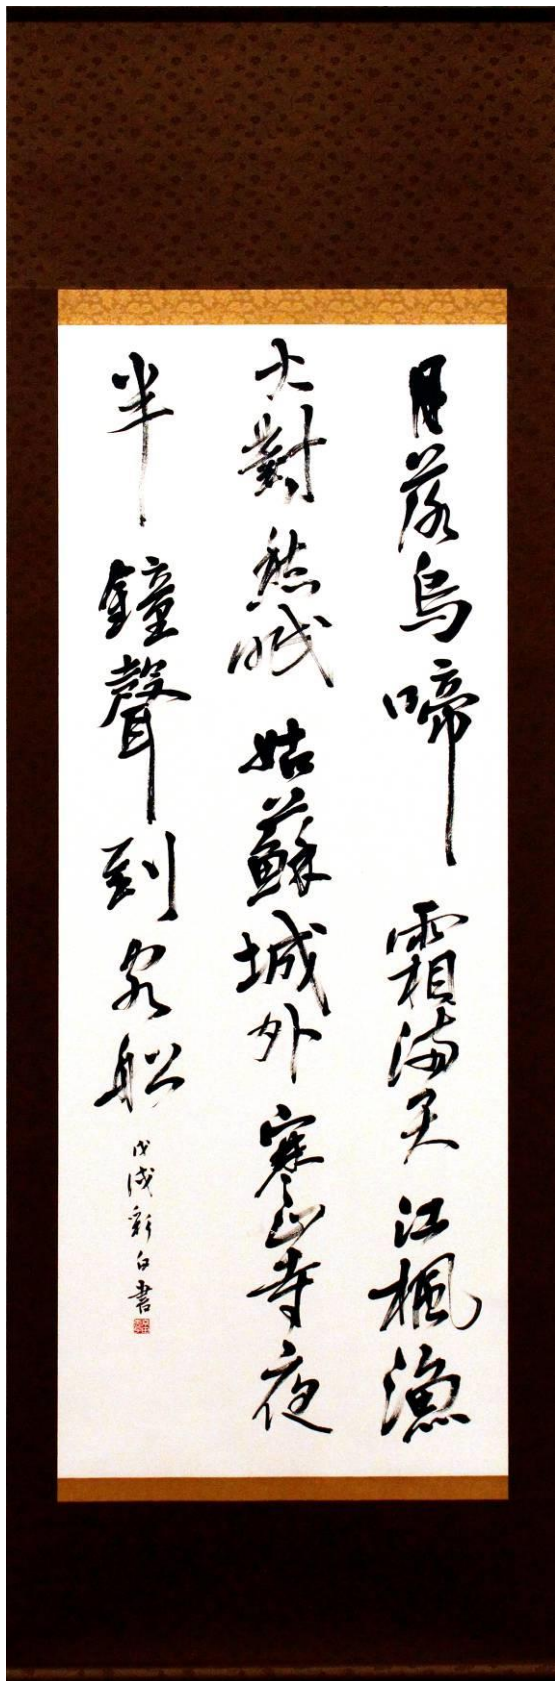 月落烏啼霜滿天江楓漁
火對愁眠姑蘇城外寒山寺夜
半鐘聲到客船
戊戌新白書